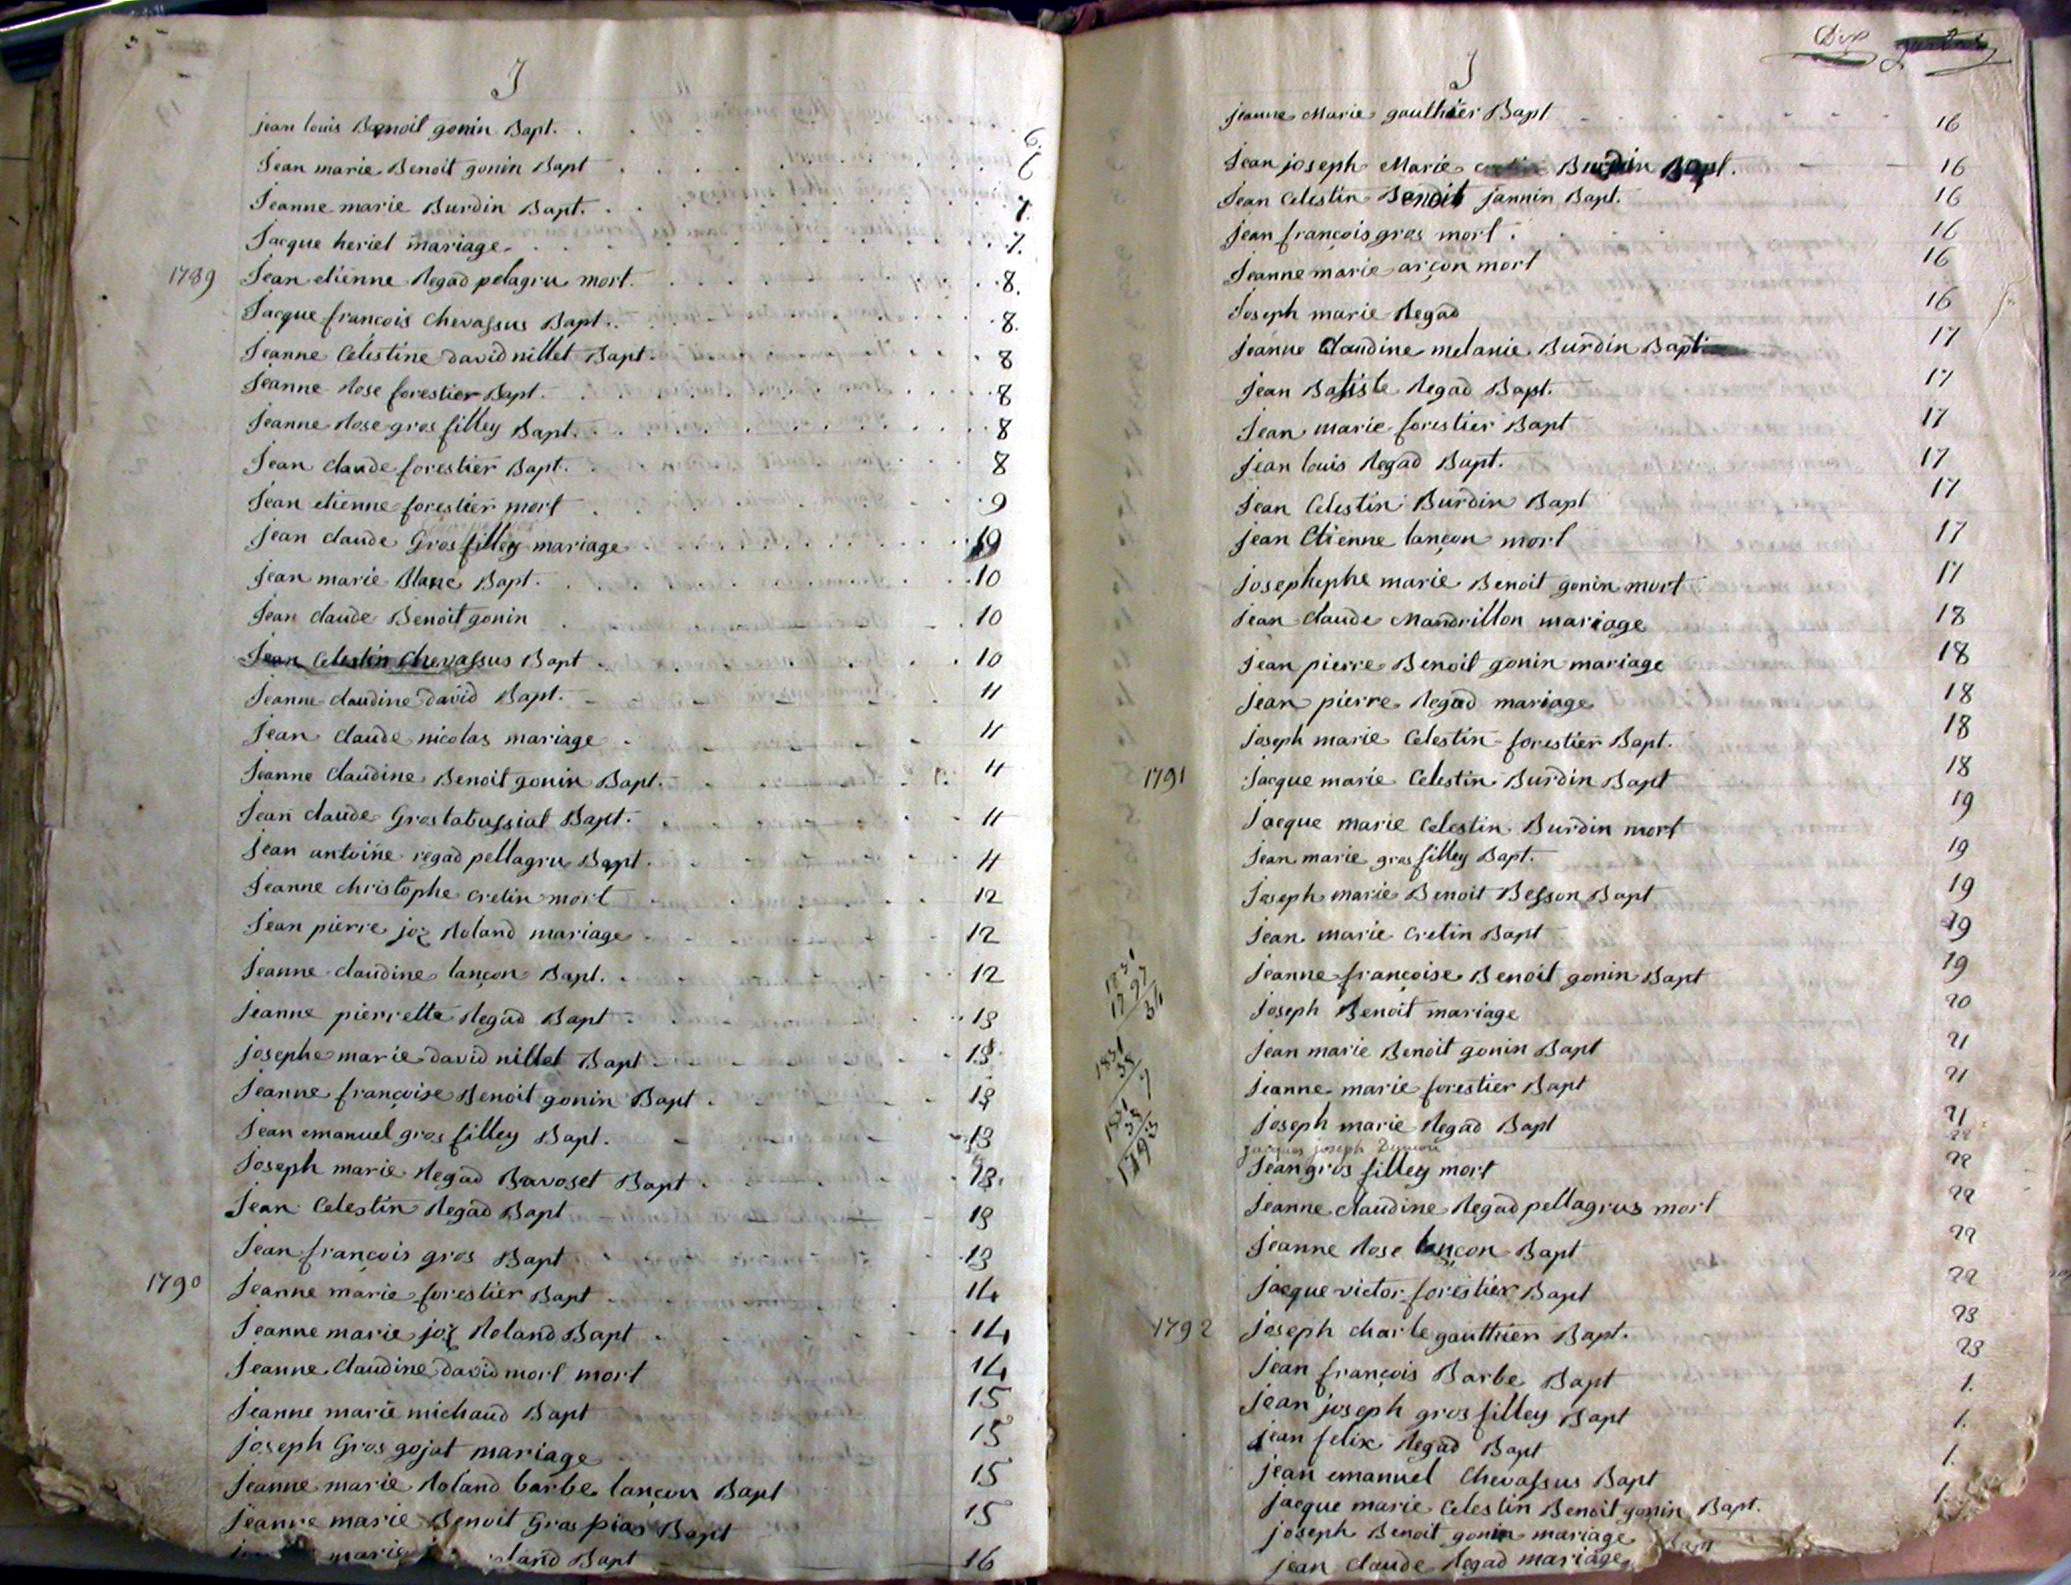 J
jean louis Benoit gonin Bapt. 6.
Jean marie Benoit gonin Bapt 6
Jeanne marie Burdin Bapt. 7.
Jacque heriel mariage 7.
1789 Jean etienne Regad pelagru mort. 8.
Jacque francois Chevassus Bapt. 8.
Jeanne Celestine david nillet Bapt. 8
Jeanne Rose forestier Bapt. 8
Jeanne Rose gros filley Bapt. 8
Jean claude forestier Bapt. 8
Jean etienne forestier mort 9
jean claude Gros filley mariage
Jean marie Blanc Bapt. 10
Jean claude Benoit gonin 10
Jean Celestin Chevassus Bapt 10
Jeanne claudine david Bapt. 11
Jean claude nicolas mariage 11
Jeanne Claudine Benoit gonin Bapt. 11
Jean claude Grostabussiat Bapt. 11
Jean antoine regad pellagru Bapt. 11
Jeanne christophe cretin mort 12
Jean pierre joz Roland mariage 12
Jeanne claudine lançon Bapt. 12
jeanne pierrette Regad Bapt 13
josephe marie david nillet Bapt 13
Jeanne françoise Benoit gonin Bapt 13
Jean emanuel gros filley Bapt. 13
Joseph marie Regad Bavoset Bapt 13
Jean Celestin Regad Bapt 13
Jean françois gros Bapt 13
1790 Jeanne marie forestier Bapt 14
Jeanne marie joz Roland Bapt 14
Jeanne Claudine david mort mort 14
Jeanne marie michaud Bapt 15
joseph Gros gojat mariage 15
Jeanne marie Roland barbe lançon Bapt 15
Jeanne marie Benoit Gros pias Bapt 15
marie land Bapt 16
Dix
J
jeanne Marie gaulthier Bapt 16
Jean joseph Marie Burdin Bapt. 16
Jean Celestin Benoit jannin Bapt. 16
jean françois gros mort 16
Jeanne marie arçon mort 16
Joseph marie Regad 16
jeanne Claudine melanie Burdin Bapt 17
Jean Batiste Regad Bapt. 17
Jean marie forestier Bapt 17
jean louis Regad Bapt. 17
Jean Celestin Burdin Bapt 17
jean Etienne lançon mort 17
josephephe marie Benoit gonin mort 17
jean claude Mandrillon mariage 18
Jean pierre Benoit gonin mariage 18
jean pierre Regad mariage 18
joseph marie Celestin forestier Bapt. 18
1791 Jacque marie Celestin Burdin Bapt 18
Jacque marie Celestin Burdin mort 19
Jean marie gros filley Bapt. 19
Joseph marie Benoit Besson Bapt 19
Jean marie Cretin Bapt 19
jeanne françoise Benoit gonin Bapt 19
joseph Benoit mariage 20
jean marie Benoit gonin Bapt 21
jeanne marie forestier Bapt 21
joseph marie Regad Bapt 21
jacques joseph 22
Jean gros filley mort 22
Jeanne claudine Regad pellagrus mort 22
Jeanne Rose lançon Bapt 22
jacque victor forestier Bapt 22
1792 joseph charle gauthier Bapt. 23
Jean françois Barbe Bapt 23
jean joseph gros filley Bapt 1.
jean felix Regad Bapt 1.
jean emanuel Chevassus Bapt 1.
jacque marie Celestin Benoit gonin Bapt. 1.
joseph Benoit gonin mariage
jean claude Regad mariage
1831
1797
34
1831
38
7
1831
38
1793